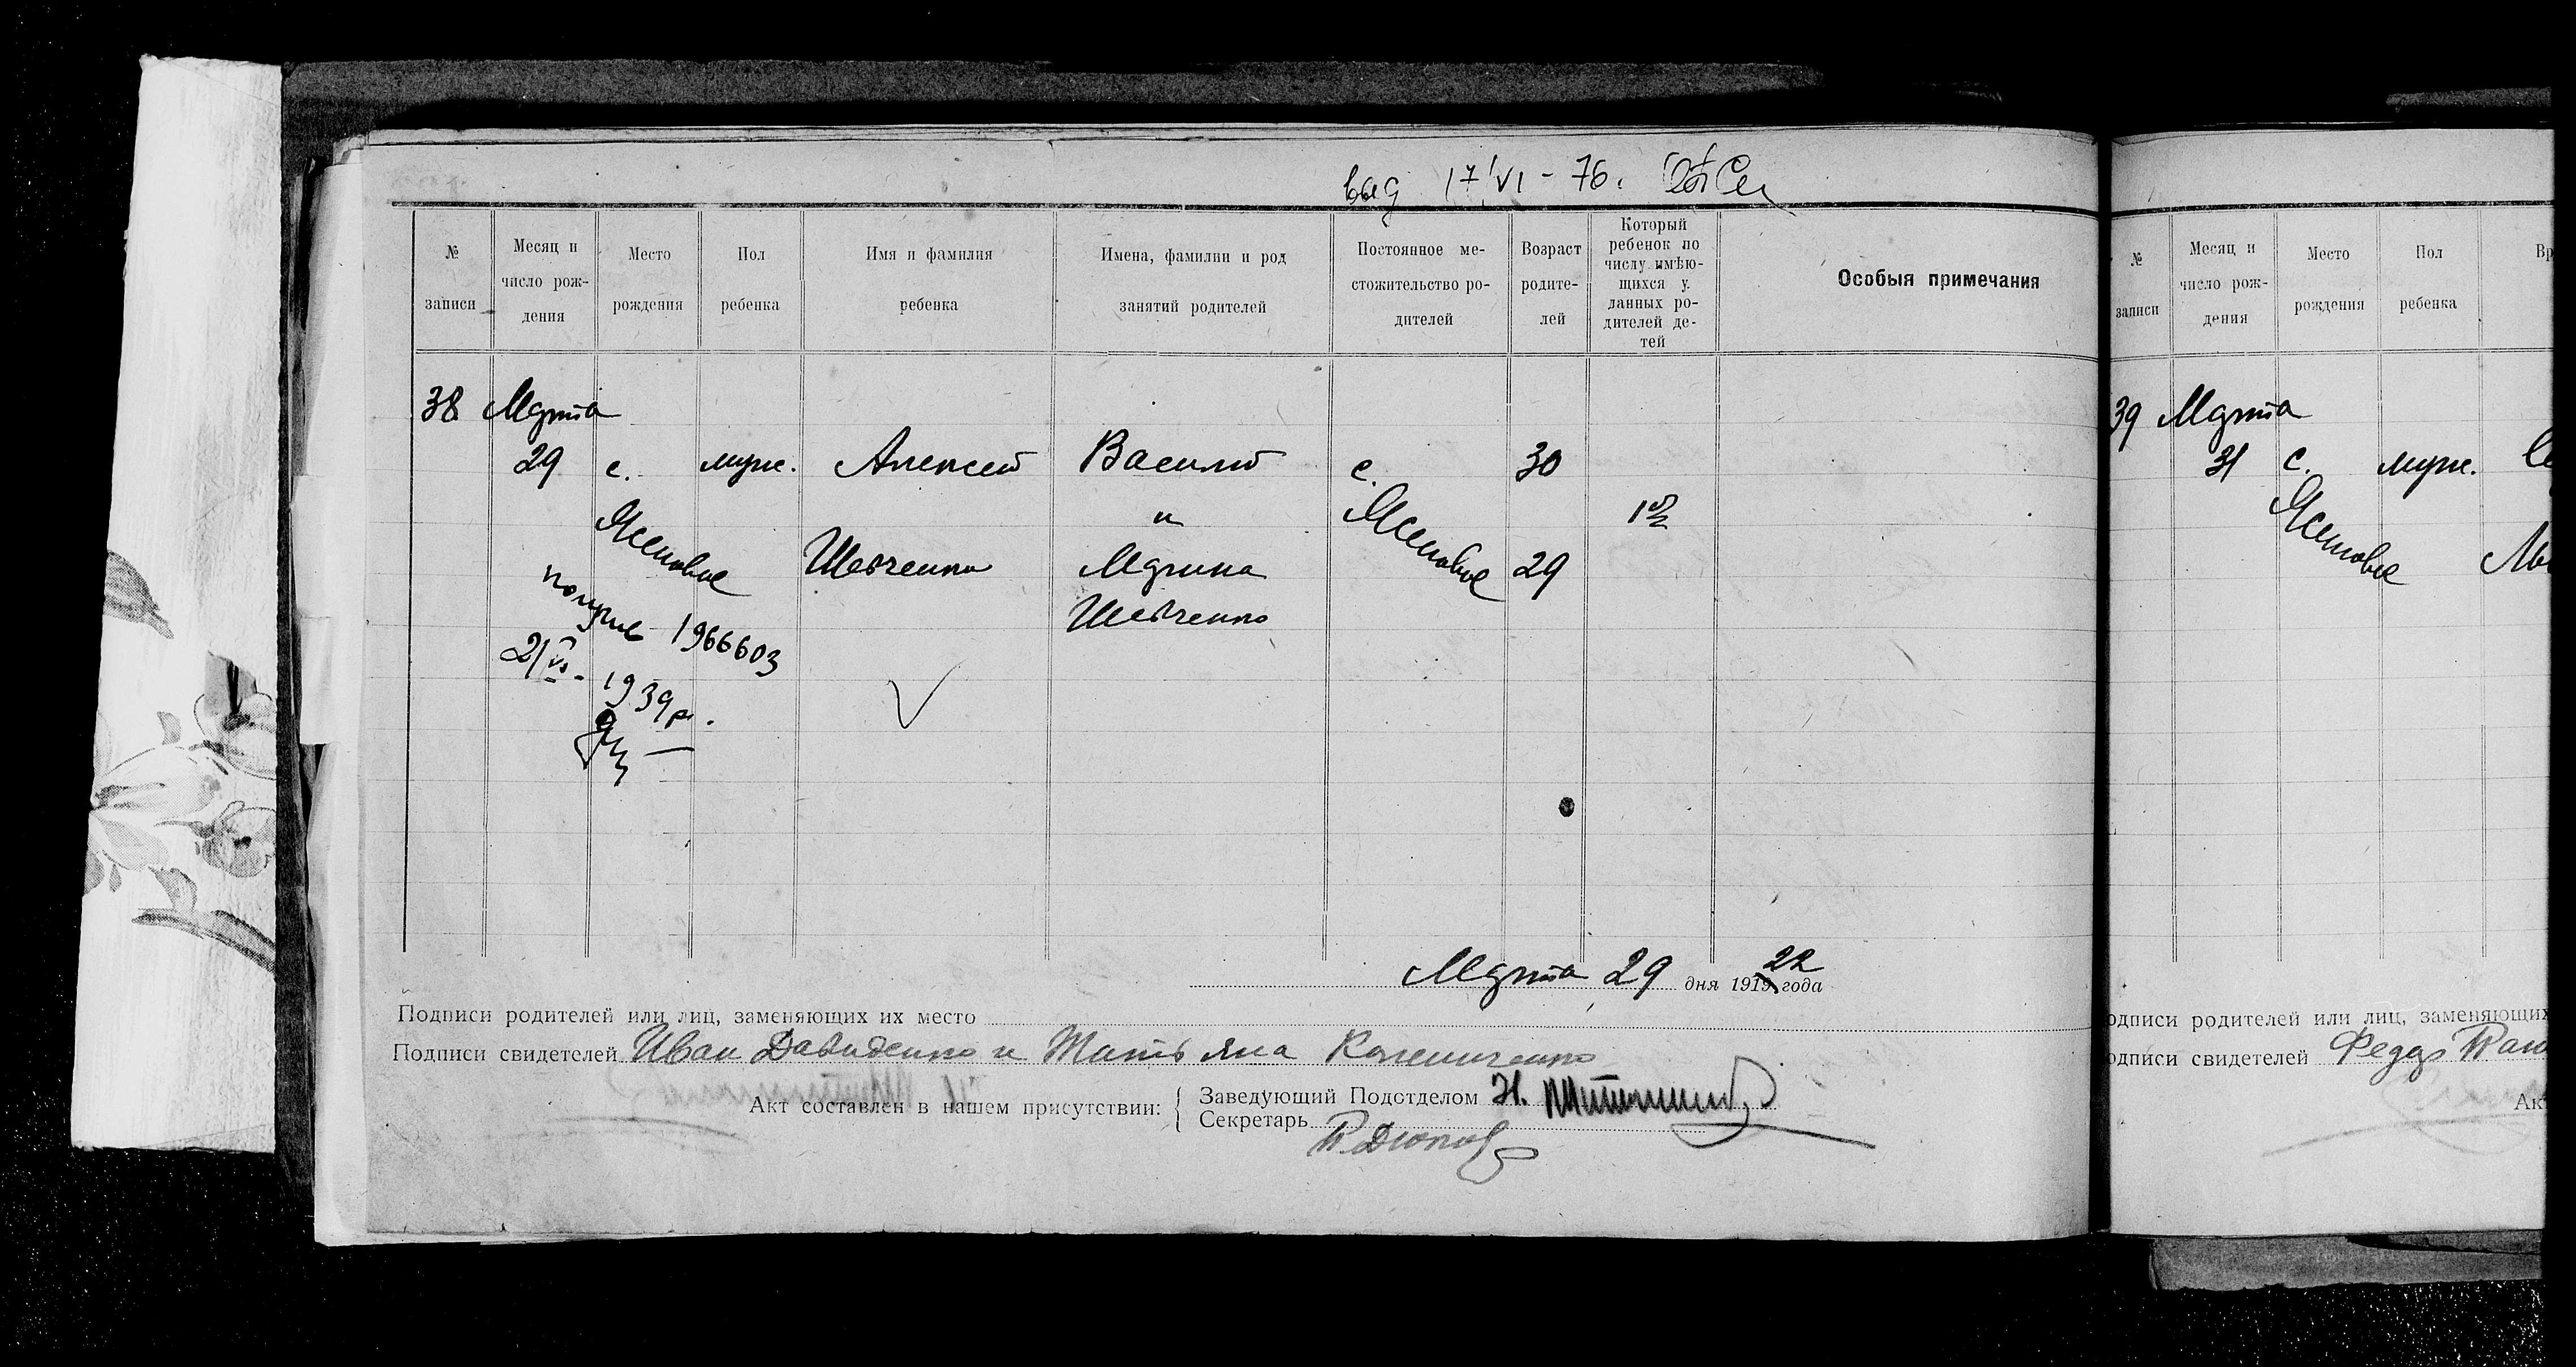 выд 17/VI - 76.
№ записи
Месяц и число рож-дения
Место рождения
Пол ребенка
Имя и фамилия ребенка
Имена, фамилии и род занятий родителей
Постоянное ме-стожительство ро-дителей
Возраст родите-лей
Который ребенок по числу имѣю-щихся у данных ро-дителей де-тей
Особыя примечания
38 Марта
29 с. муж. Алексей Василий с. 30
Ясеновое и Ясеновое 1й
Шевченко Марина 29
Шевченко
1966603
21/VI - 1939 р.
Марта 29 дня 1919 22 года
Подписи родителей или лиц, заменяющих их место
Подписи свидетелей Иван Давиденко и Татьяна
Акт составлен в нашем присутствии:
Заведующий Подотделом Н.
Секретарь
№ записи
Месяц и число рож-дения
Место рождения
Пол ребенка
Вр
39 Марта
31 с. муж.
Ясеновое
одписи родителей или лиц, заменяющих
одписи свидетелей Федор
Ак